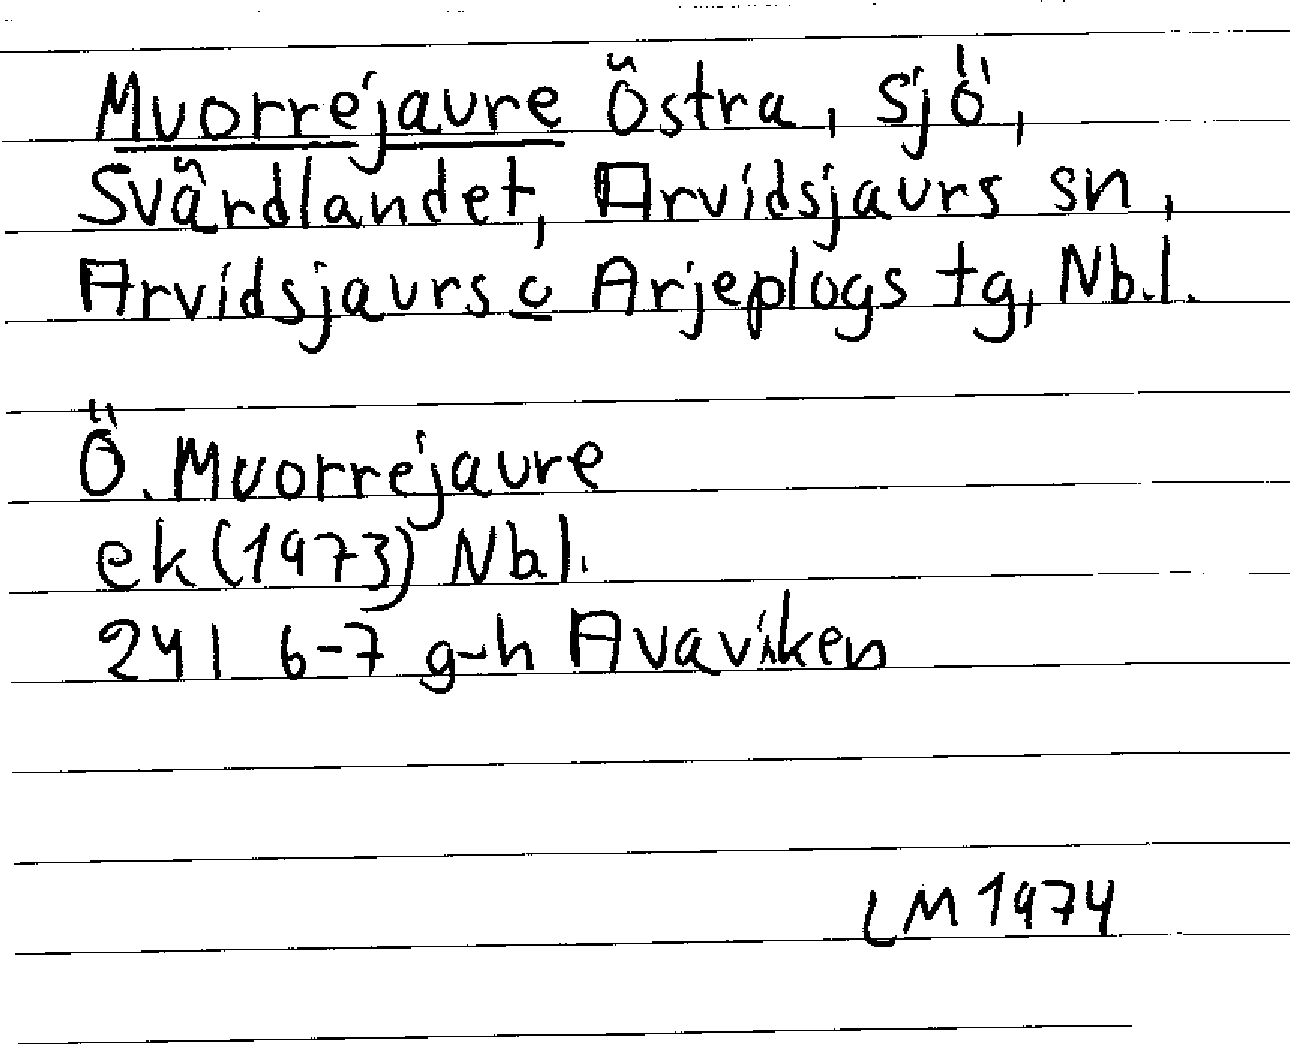 Muorrejaure Östra, sjö,
Svärdlandet, Arvidsjaurs sn,
Arvidsjaurs o Arjeplogs tg, Nb.l.
Ö. Muorrejaure
ek (1973) Nb.l.
24I 6-7 g-h Avaviken
LM 1974